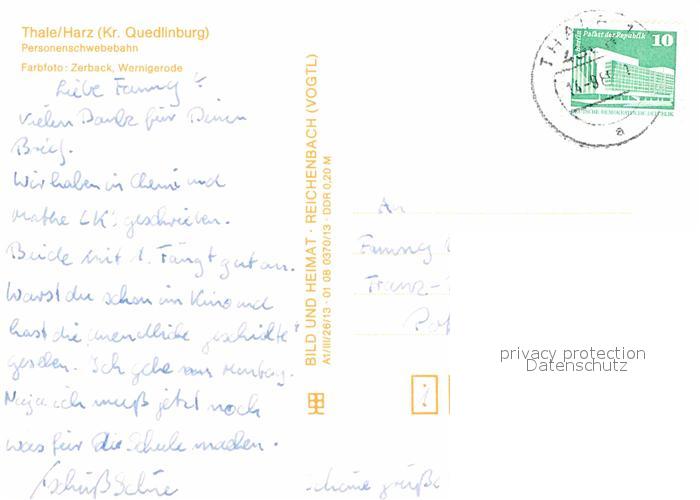 Thale/Harz (Kr. Quedlinburg)
Personenschwebebahn
Farbfoto: Zerback, Wernigerode
Liebe Fanny!
vielen Dank für Deinen
Brief.
Wir haben in Chemie und
Mathe LK's geschrieben.
Beide mit 1. Fängt gut an.
Warst du schon im Kino und
hast die unendliche geschichte
gesehen. Ich gehe am Montag.
Naja ich muß jetzt noch
was für die Schule machen.
Tschüß
schöne grüße
BILD UND HEIMAT · REICHENBACH (VOGTL)
A1/III/26/13 · 01 08 0370/13 · DDR 0,20 M
THALE 1
a
Berlin Palast der Republik
10
DEUTSCHE DEMOKRATISCHE REPUBLIK
An
Fanny
Franz-
privacy protection
Datenschutz